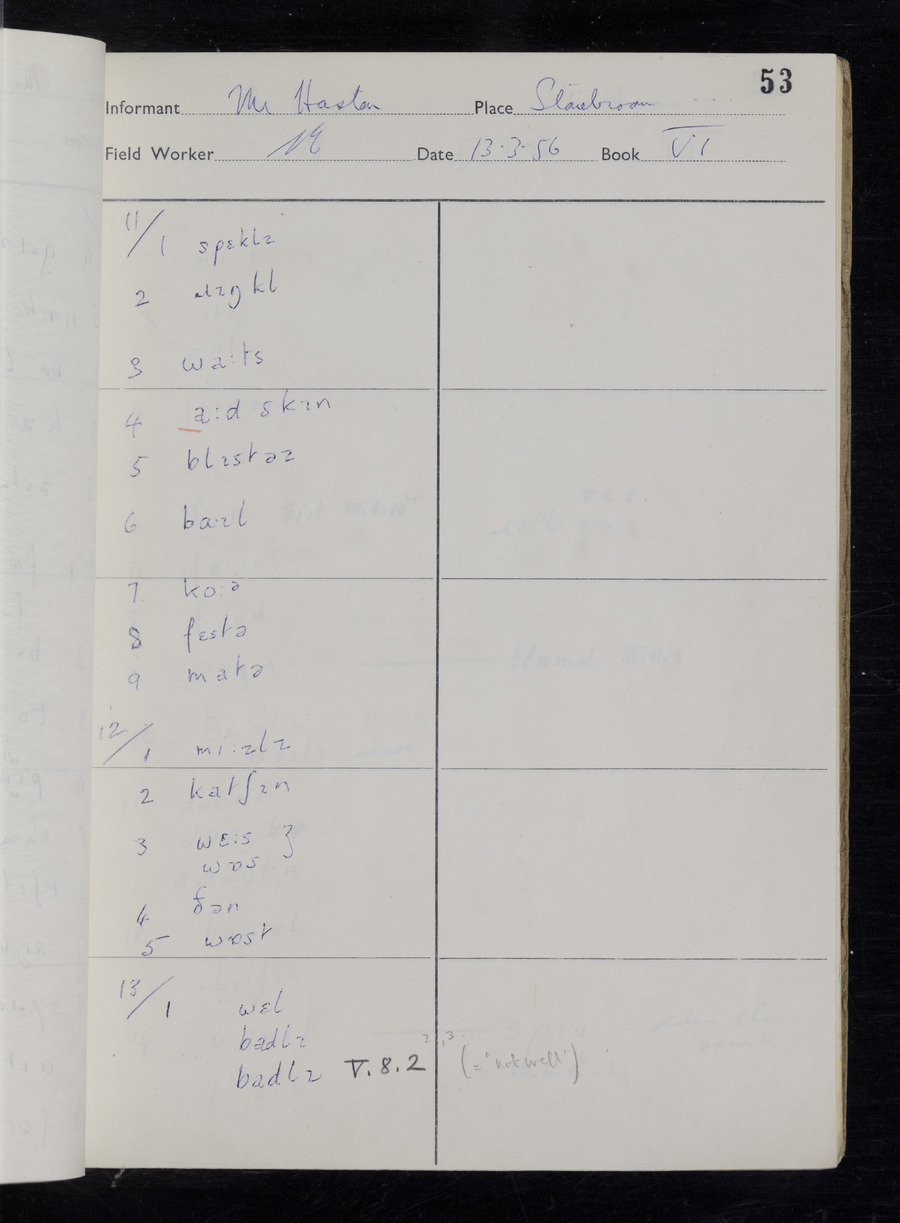 53
Informant Mr Haxton Place
Field Worker Date 13·3·56 Book VI
11/1 spɛklɪ
2 ɹɪŋkl
3 wa:ts
4 a:d skɪn
5 blɪstəz
6 ba:ɪl
7 ko:ə
8 fɛstə
9 matə
12/1 mi:zlz
2 katʃɪn
3 wɛ:s }
wɒs
4 ðən
5 wɒst
13/1 wɛl
badlɪ
badlɪ V.8.2 2,3. (= 'not well')